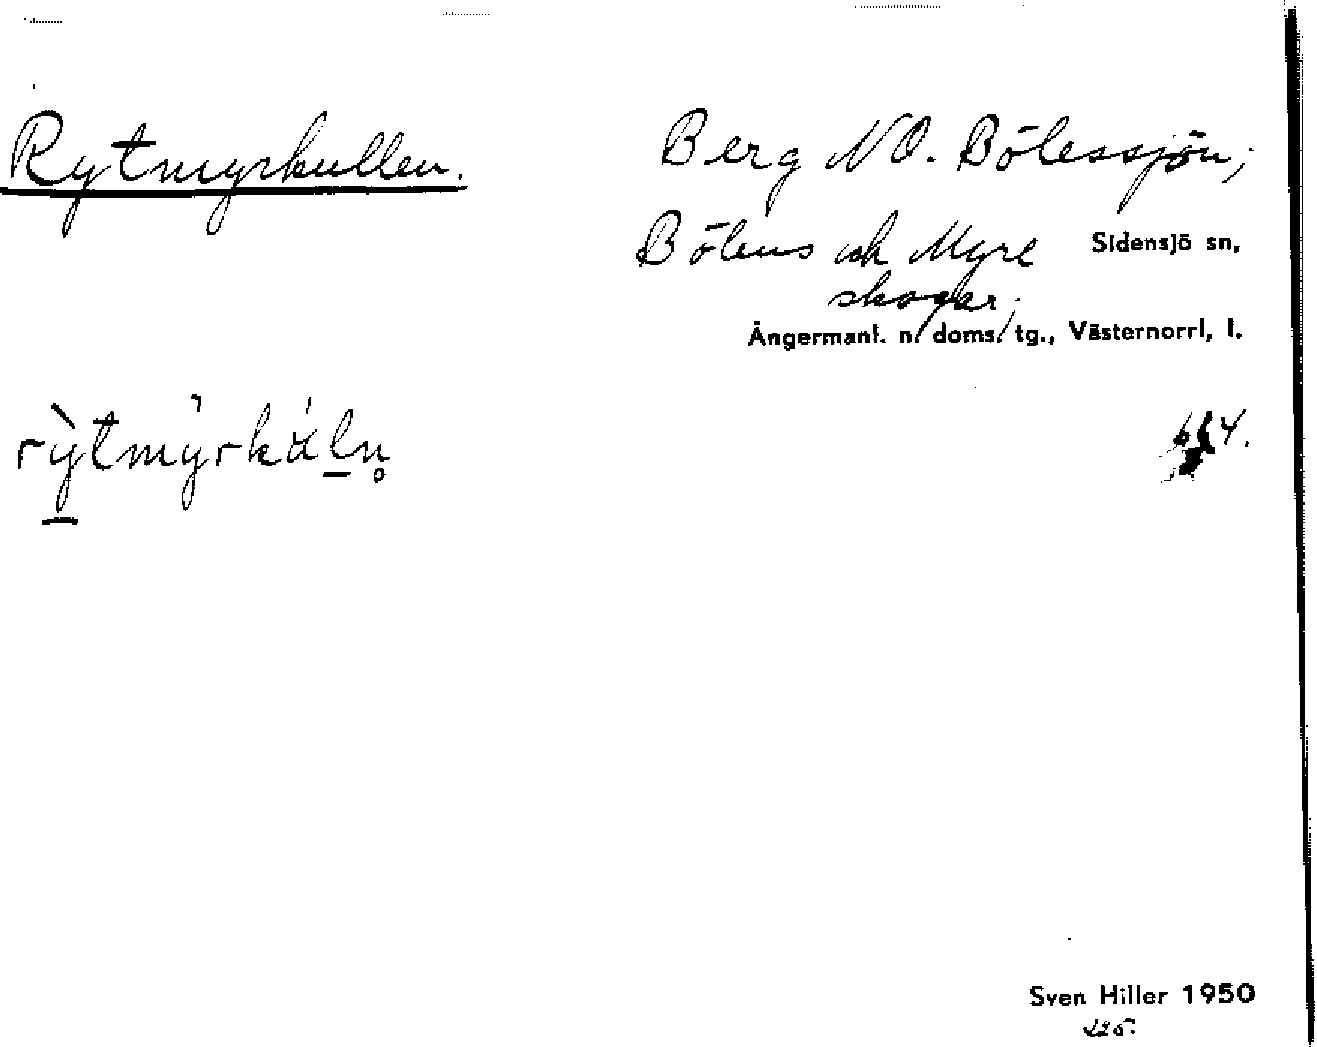 Rytmyrkullen.
Berg NO. Bölessjön;
Bölens och Myre
Sidensjö sn,
skogar;
Ångermanl. n. doms. tg., Västernorrl, l.
rỳtmy̍rkáln̥
Sven Hiller 1950
225.